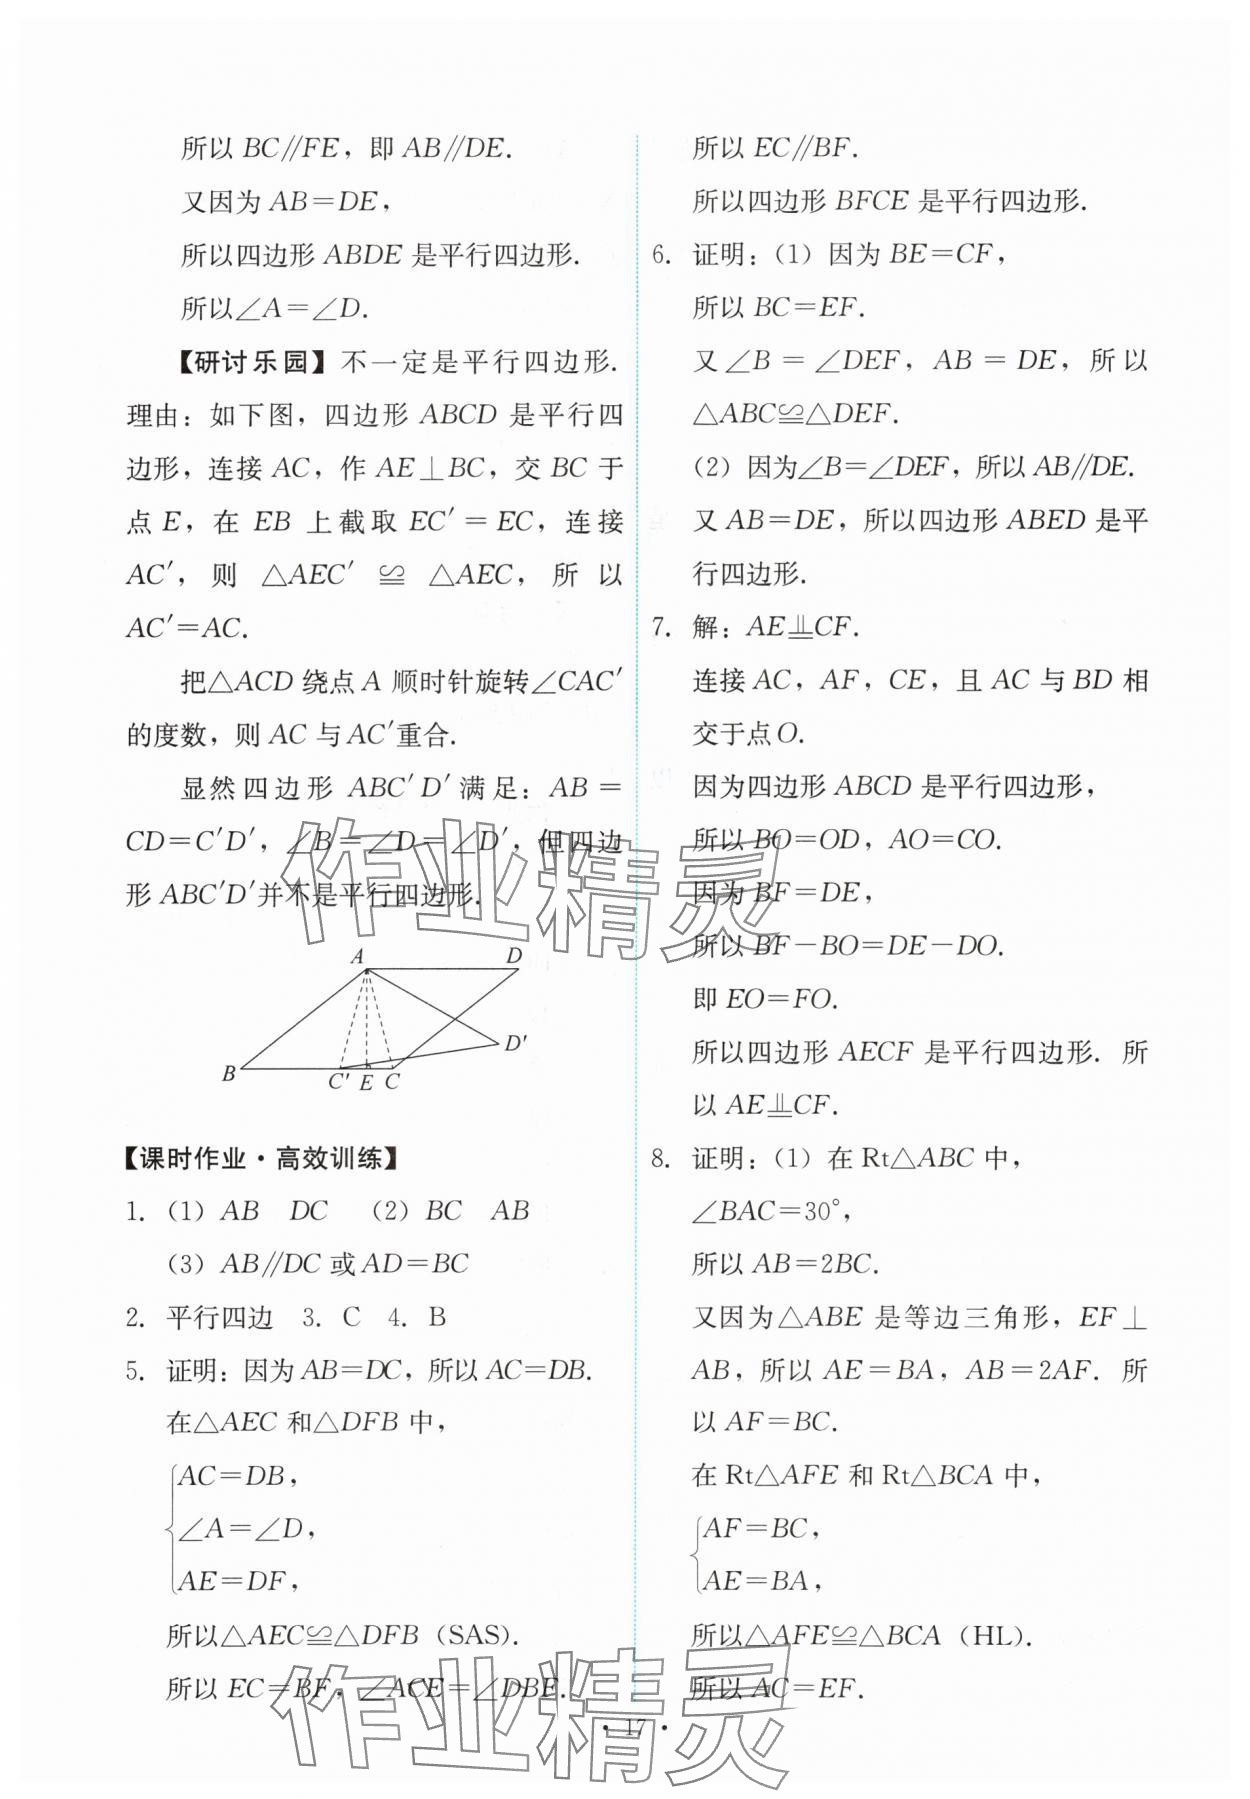 所以 BC∥FE，即 AB∥DE.
又因为 AB=DE，
所以四边形 ABDE 是平行四边形.
所以∠A=∠D.
【研讨乐园】不一定是平行四边形.
理由：如下图，四边形 ABCD 是平行四
边形，连接 AC，作 AE⊥BC，交 BC 于
点 E，在 EB 上截取 EC′=EC，连接
AC′，则 △AEC′ ≌ △AEC，所以
AC′=AC.
把△ACD 绕点 A 顺时针旋转∠CAC′
的度数，则 AC 与 AC′重合.
显然四边形 ABC′D′满足：AB=
CD=C′D′，∠B=∠D=∠D′，但四边
形 ABC′D′并不是平行四边形.
A D
D′
B C′ E C
【课时作业·高效训练】
1. （1）AB DC （2）BC AB
（3）AB∥DC 或 AD=BC
2. 平行四边 3. C 4. B
5. 证明：因为 AB=DC，所以 AC=DB.
在△AEC 和△DFB 中，
AC=DB，
∠A=∠D，
AE=DF，
所以△AEC≌△DFB（SAS）.
所以 EC=BF，∠ACE=∠DBF.
所以 EC∥BF.
所以四边形 BFCE 是平行四边形.
6. 证明：（1）因为 BE=CF，
所以 BC=EF.
又∠B=∠DEF，AB=DE，所以
△ABC≌△DEF.
（2）因为∠B=∠DEF，所以 AB∥DE.
又 AB=DE，所以四边形 ABED 是平
行四边形.
7. 解：AE⥫CF.
连接 AC，AF，CE，且 AC 与 BD 相
交于点 O.
因为四边形 ABCD 是平行四边形，
所以 BO=OD，AO=CO.
因为 BF=DE，
所以 BF－BO=DE－DO.
即 EO=FO.
所以四边形 AECF 是平行四边形. 所
以 AE⥫CF.
8. 证明：（1）在 Rt△ABC 中，
∠BAC=30°，
所以 AB=2BC.
又因为△ABE 是等边三角形，EF⊥
AB，所以 AE=BA，AB=2AF. 所
以 AF=BC.
在 Rt△AFE 和 Rt△BCA 中，
AF=BC，
AE=BA，
所以△AFE≌△BCA（HL）.
所以 AC=EF.
· 17 ·
作业精灵
作业精灵